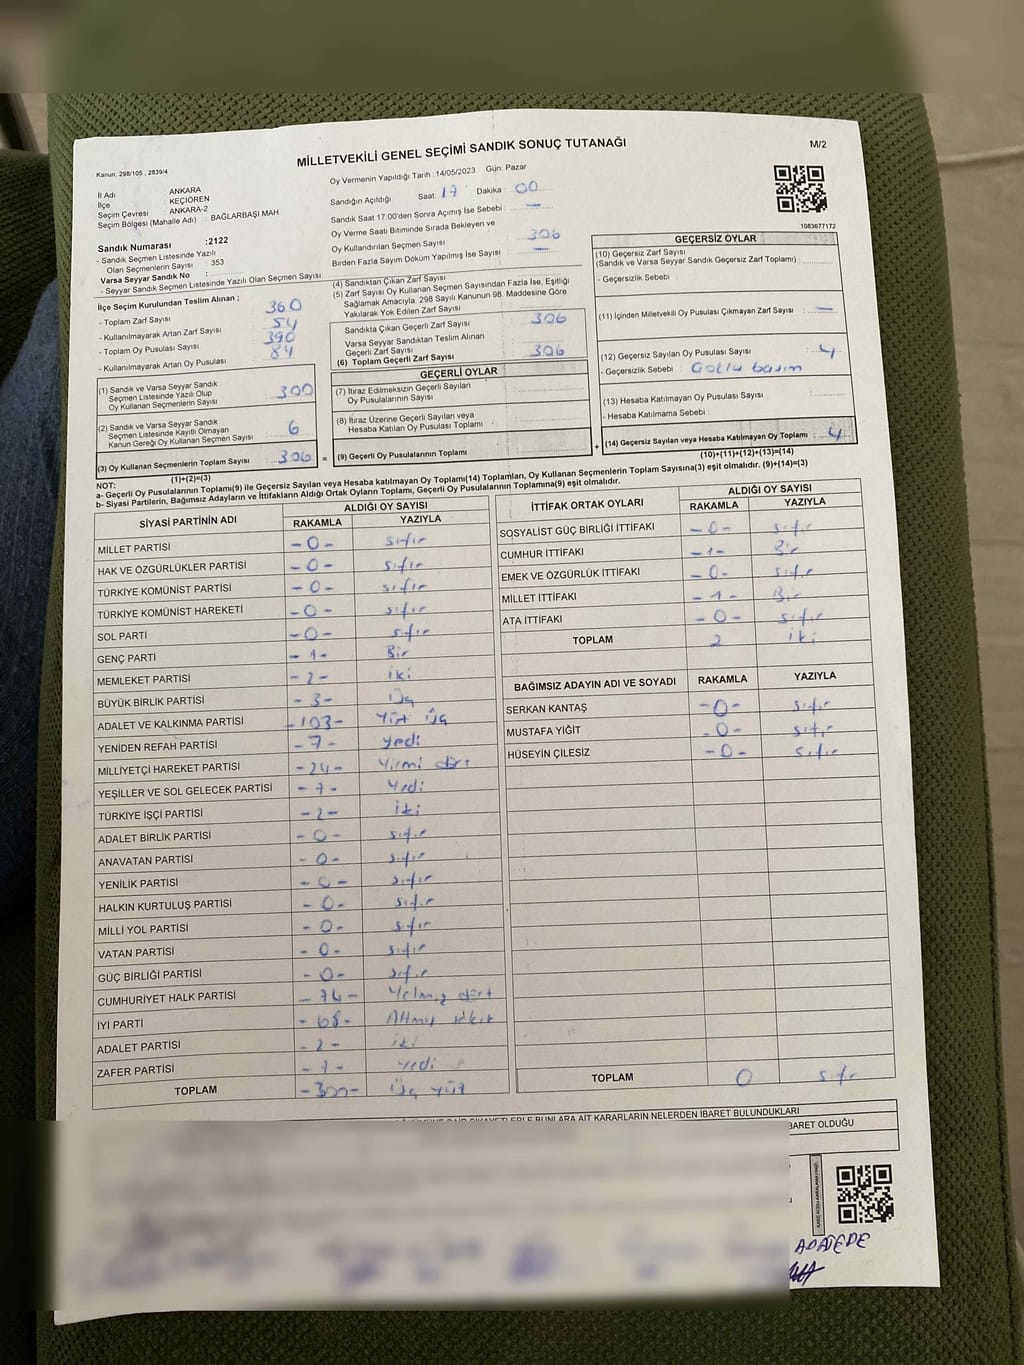 MİLLETVEKİLİ GENEL SEÇİMİ SANDIK SONUÇ TUTANAĞI
M/2
Kanun: 298/105 , 2839/4
Oy Vermenin Yapıldığı Tarih : 14/05/2023 Gün: Pazar
İl Adı ANKARA
İlçe KEÇİÖREN
Seçim Çevresi ANKARA-2
Seçim Bölgesi (Mahalle Adı) : BAĞLARBAŞI MAH
Sandığın Açıldığı Saat: 17 Dakika : 00
Sandık Saat 17:00'den Sonra Açımış İse Sebebi : —
Oy Verme Saati Bitiminde Sırada Bekleyen ve
Oy Kullandırılan Seçmen Sayısı : 306
Birden Fazla Sayım Döküm Yapılmış İse Sayısı : —
1083677172
Sandık Numarası :2122
- Sandık Seçmen Listesinde Yazılı
Olan Seçmenlerin Sayısı : 353
Varsa Seyyar Sandık No :
- Seyyar Sandık Seçmen Listesinde Yazılı Olan Seçmen Sayısı :
İlçe Seçim Kurulundan Teslim Alınan ;
- Toplam Zarf Sayısı : 360
- Kullanılmayarak Artan Zarf Sayısı : 54
- Toplam Oy Pusulası Sayısı : 390
- Kullanılmayarak Artan Oy Pusulası : 84
(1) Sandık ve Varsa Seyyar Sandık
Seçmen Listesinde Yazılı Olup
Oy Kullanan Seçmenlerin Sayısı : 300
(2) Sandık ve Varsa Seyyar Sandık
Seçmen Listesinde Kayıtlı Olmayan
Kanun Gereği Oy Kullanan Seçmen Sayısı : 6
(3) Oy Kullanan Seçmenlerin Toplam Sayısı : 306
(1)+(2)=(3)
(4) Sandıktan Çıkan Zarf Sayısı :
(5) Zarf Sayısı Oy Kullanan Seçmen Sayısından Fazla İse, Eşitliği
Sağlamak Amacıyla, 298 Sayılı Kanunun 98. Maddesine Göre
Yakılarak Yok Edilen Zarf Sayısı :
Sandıkta Çıkan Geçerli Zarf Sayısı : 306
Varsa Seyyar Sandıktan Teslim Alınan
Geçerli Zarf Sayısı :
(6) Toplam Geçerli Zarf Sayısı : 306
GEÇERLİ OYLAR
(7) İtiraz Edilmeksizin Geçerli Sayılan
Oy Pusulalarının Sayısı :
(8) İtiraz Üzerine Geçerli Sayılan veya
Hesaba Katılan Oy Pusulası Toplamı :
= (9) Geçerli Oy Pusulalarının Toplamı :
GEÇERSİZ OYLAR
(10) Geçersiz Zarf Sayısı
(Sandık ve Varsa Seyyar Sandık Geçersiz Zarf Toplamı) :
- Geçersizlik Sebebi :
(11) İçinden Milletvekili Oy Pusulası Çıkmayan Zarf Sayısı : —
(12) Geçersiz Sayılan Oy Pusulası Sayısı : 4
- Geçersizlik Sebebi :
(13) Hesaba Katılmayan Oy Pusulası Sayısı :
- Hesaba Katılmama Sebebi :
+ (14) Geçersiz Sayılan veya Hesaba Katılmayan Oy Toplamı : 4
(10)+(11)+(12)+(13)=(14)
NOT:
a- Geçerli Oy Pusulalarının Toplamı(9) ile Geçersiz Sayılan veya Hesaba katılmayan Oy Toplamı(14) Toplamları, Oy Kullanan Seçmenlerin Toplam Sayısına(3) eşit olmalıdır. (9)+(14)=(3)
b- Siyasi Partilerin, Bağımsız Adayların ve İttifakların Aldığı Ortak Oyların Toplamı, Geçerli Oy Pusulalarının Toplamına(9) eşit olmalıdır.
SİYASİ PARTİNİN ADI ALDIĞI OY SAYISI
RAKAMLA YAZIYLA
MİLLET PARTİSİ -0- sıfır
HAK VE ÖZGÜRLÜKLER PARTİSİ -0- sıfır
TÜRKİYE KOMÜNİST PARTİSİ -0- sıfır
TÜRKİYE KOMÜNİST HAREKETİ -0- sıfır
SOL PARTİ -0- sıfır
GENÇ PARTİ -1- Bir
MEMLEKET PARTİSİ -2- iki
BÜYÜK BİRLİK PARTİSİ -3- Üç
ADALET VE KALKINMA PARTİSİ -103- Yüz Üç
YENİDEN REFAH PARTİSİ -7- yedi
MİLLİYETÇİ HAREKET PARTİSİ -24- Yirmi dört
YEŞİLLER VE SOL GELECEK PARTİSİ -7- Yedi
TÜRKİYE İŞÇİ PARTİSİ -2- İki
ADALET BİRLİK PARTİSİ -0- sıfır
ANAVATAN PARTİSİ -0- sıfır
YENİLİK PARTİSİ -0- sıfır
HALKIN KURTULUŞ PARTİSİ -0- sıfır
MİLLİ YOL PARTİSİ -0- sıfır
VATAN PARTİSİ -0- sıfır
GÜÇ BİRLİĞİ PARTİSİ -0- sıfır
CUMHURİYET HALK PARTİSİ -74- Yetmiş dört
İYİ PARTİ -68- Altmış sekiz
ADALET PARTİSİ -2- iki
ZAFER PARTİSİ -7- yedi
TOPLAM -300- Üç yüz
İTTİFAK ORTAK OYLARI ALDIĞI OY SAYISI
RAKAMLA YAZIYLA
SOSYALİST GÜÇ BİRLİĞİ İTTİFAKI -0- sıfır
CUMHUR İTTİFAKI -1- Bir
EMEK VE ÖZGÜRLÜK İTTİFAKI -0- sıfır
MİLLET İTTİFAKI -1- Bir
ATA İTTİFAKI -0- sıfır
TOPLAM 2 iki
BAĞIMSIZ ADAYIN ADI VE SOYADI RAKAMLA YAZIYLA
SERKAN KANTAŞ -0- sıfır
MUSTAFA YİĞİT -0- sıfır
HÜSEYİN ÇİLESİZ -0- sıfır
TOPLAM 0 sıfır
ŞİKAYETLERLE BUNLARA AİT KARARLARIN NELERDEN İBARET BULUNDUKLARI
BARET OLDUĞU